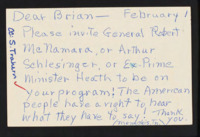 Dear Brian— February 1
Please invite General Robert
McNamara, or Arthur
Schlesinger, or Ex-Prime
Minister Heath to be on
your program! The American
people have a right to hear
what they have to say! Thank
you.